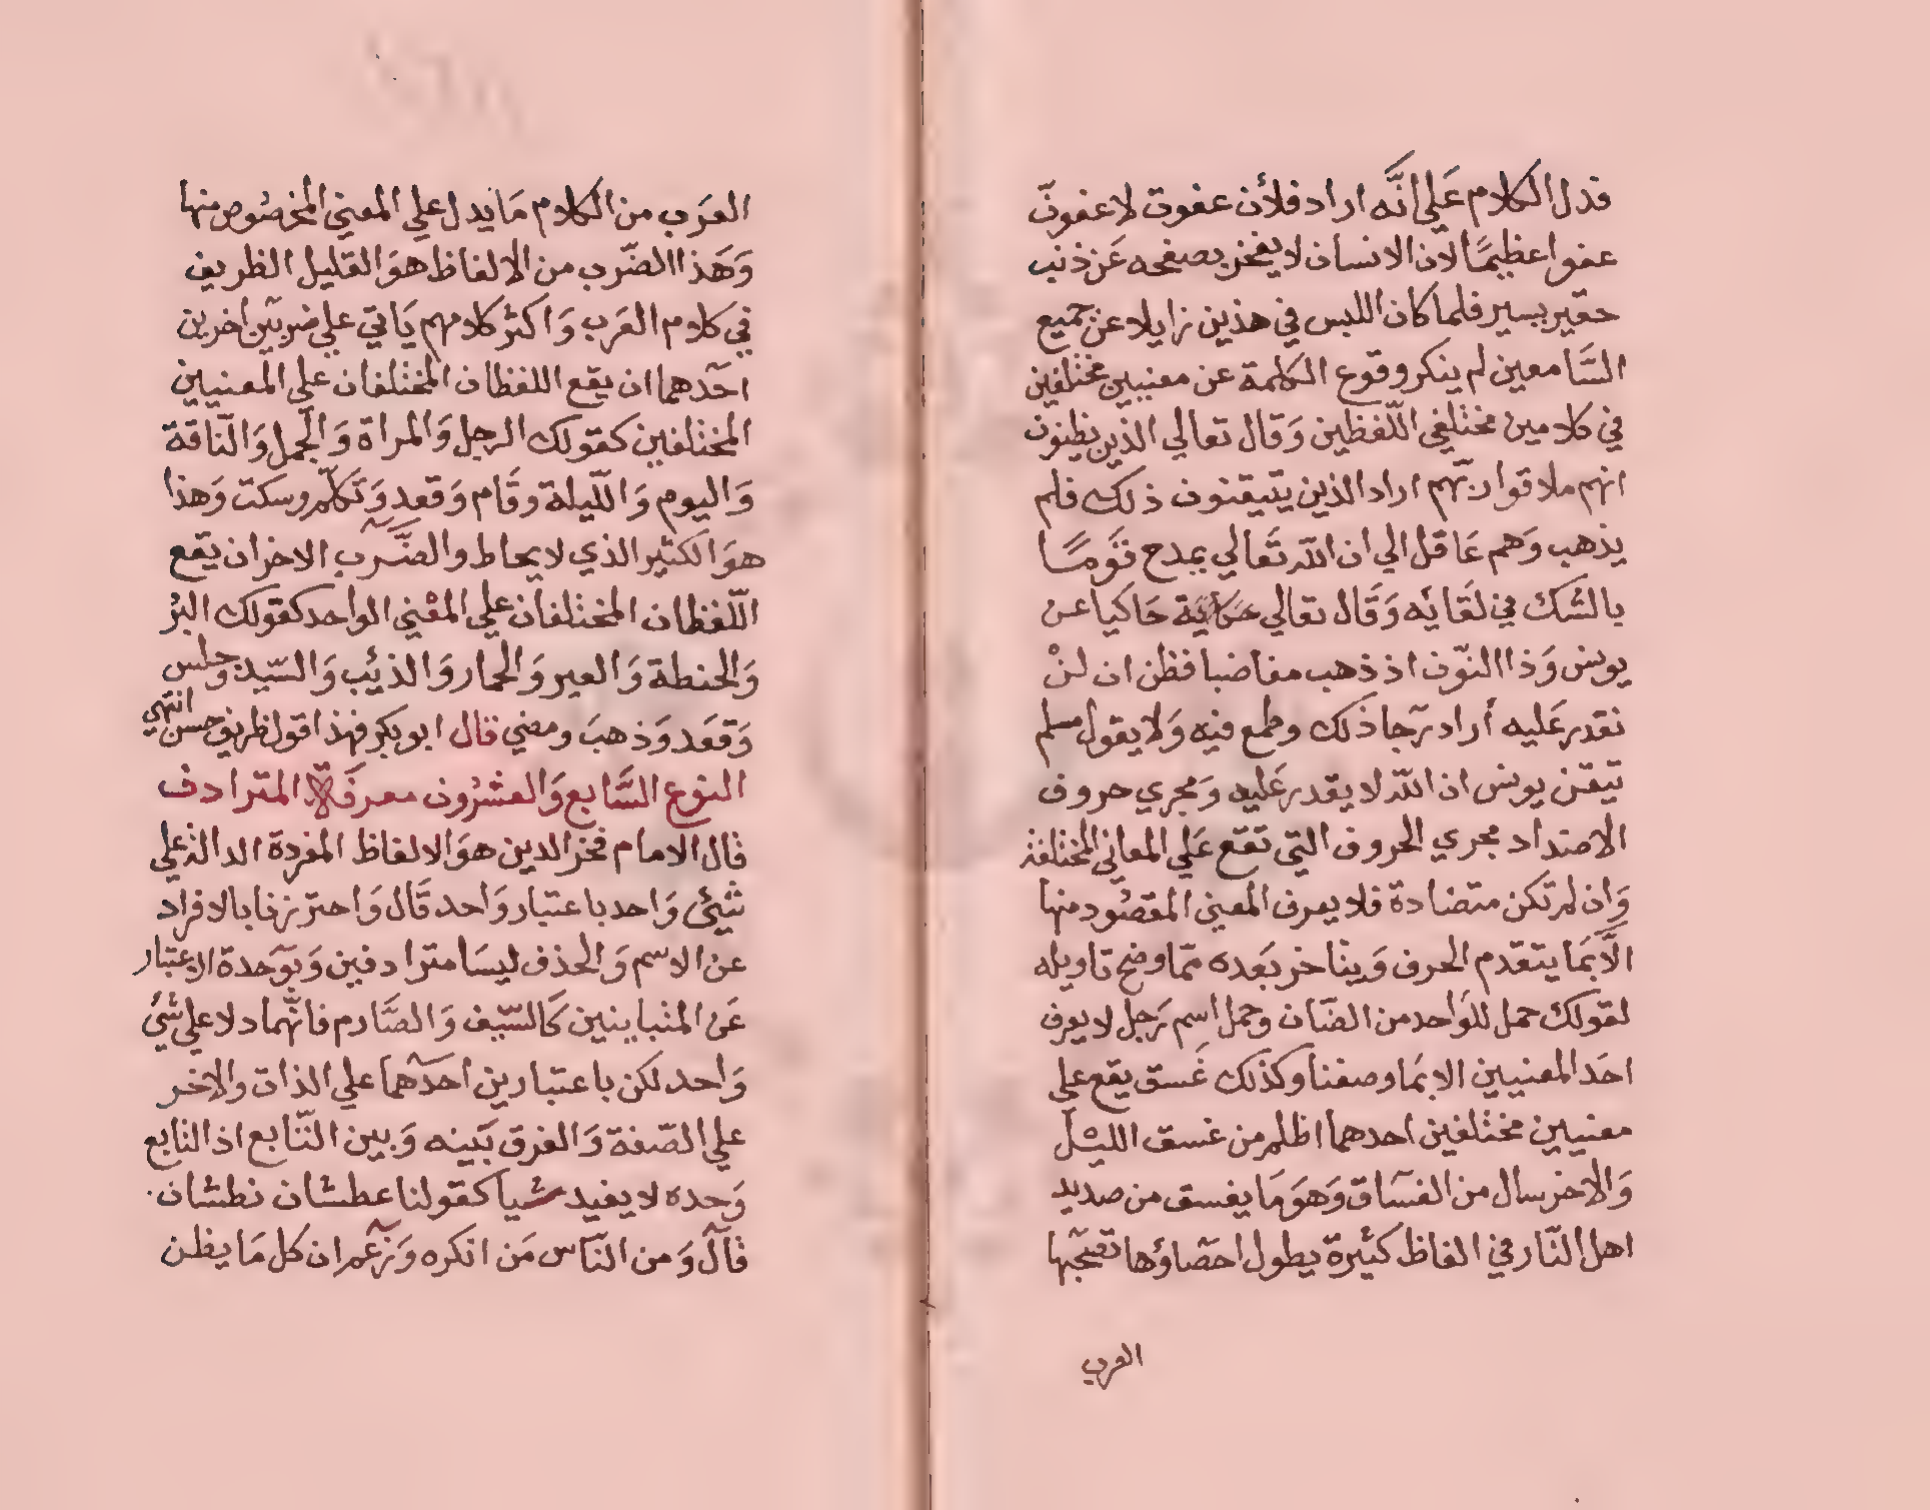 فدل الكلام عَلي انَّه اراد فلأن عفوت لاعفونّ
عفوا عظيمًا لان الانسان لا يفخر بصفحه عَن ذنب
حقير يسير فلما كان اللبس في هذين زايلا عن جميع
السَّامعين لم ينكر وقوع الكلمة عن معنيين مختلفين
في كلامين مختلفي اللّفظين وَقال تعالي الذين يظنون
انهم ملاقوا ربّهم اراد الذين يتيقنون ذلك فلم
يذهب وَهم عَاقل الي ان الله تَعالي يمدح قومًا
بالشك في لقَائه وَقَال تعالي حَكايَة حَاكيا عن
يونس وَذا النّون اذ ذهب مغاضبا فظن ان لنْ
نقدر عَليه أراد رجا ذلك وطمع فيه وَلا يقول مسلم
تيقن يونس ان الله لا يقدر عَليه وَمجري حروف
الاضداد مجري الحروف التي تقع عَلي المعاني المختلفة
وَان لم تكن متضادة فلا يعرف المعني المقصُود منها
الَّا بمَا يتقدم الحرف وَيتاخر بَعده ممّا وضح تاويله
لقولك حمل للوَاحد من الضّان وحمل اسم رَجل لا يعرف
احَد المعنيين الا بمَا وصفنا وكذلك غَسق يقع علي
معنيين مختلفين احدهما اظلم من غسق الليل
وَالاخر سال من الغسَاق وَهوَ مَا يغسق من صديد
اهل النّار في الفاظ كثيرة يطول احصَاؤها تصحبها
العرب
العرَب من الكلام مَا يدل علي المعني المخصُوص منها
وَهَذا الضّرب من الالفاظ هوَ القليل الظريف
في كلام العَرب وَاكثر كلامهم يَاتي علي ضربين اخرين
احَدهما ان يقع اللفظان المختلفان علي المعنيين
المختلفين كقولك الرجل وَالمراة وَالجمل وَالنّاقة
وَاليوم وَاللّيلة وقَام وَقعد وَتَكلّم وسكت وَهذا
هوَ الكثير الذي لا يحاط والضَّرب الاخر ان يَقع
اللّفظان المختلفان علي المعْني الواحد كقولك البُر
وَالحنطة وَالعير وَالحمار وَالذئب وَالسّيد وَجلس
وَقعَد وَذهبَ ومضي قال ابو بكر فهذا قول ظريف حسن انتهي
النوع السَّابع وَالعشرُون معرفَة المترادف
قال الامام فخر الدين هوَ الالفاظ المفردة الدالة علي
شيئ وَاحد باعتبار وَاحد قَال وَاحترزنا بالافراد
عن الاسم وَالحذف ليسَا مترادفين وَبوَحدة الاعتبار
عَن المتباينين كَالسّيف وَالصَّارم فانّهما دلا علي شَي
وَاحد لكن باعتبارين احَدهما علي الذات والاخر
علي الصّفة وَالفرق بَينه وَبين التّابع اذ التابع
وَحده لا يفيد شيا كقولنا عطشان نطشان
قالَ وَمن النّاس مَن انكره وَزعَم ان كل مَا يظن